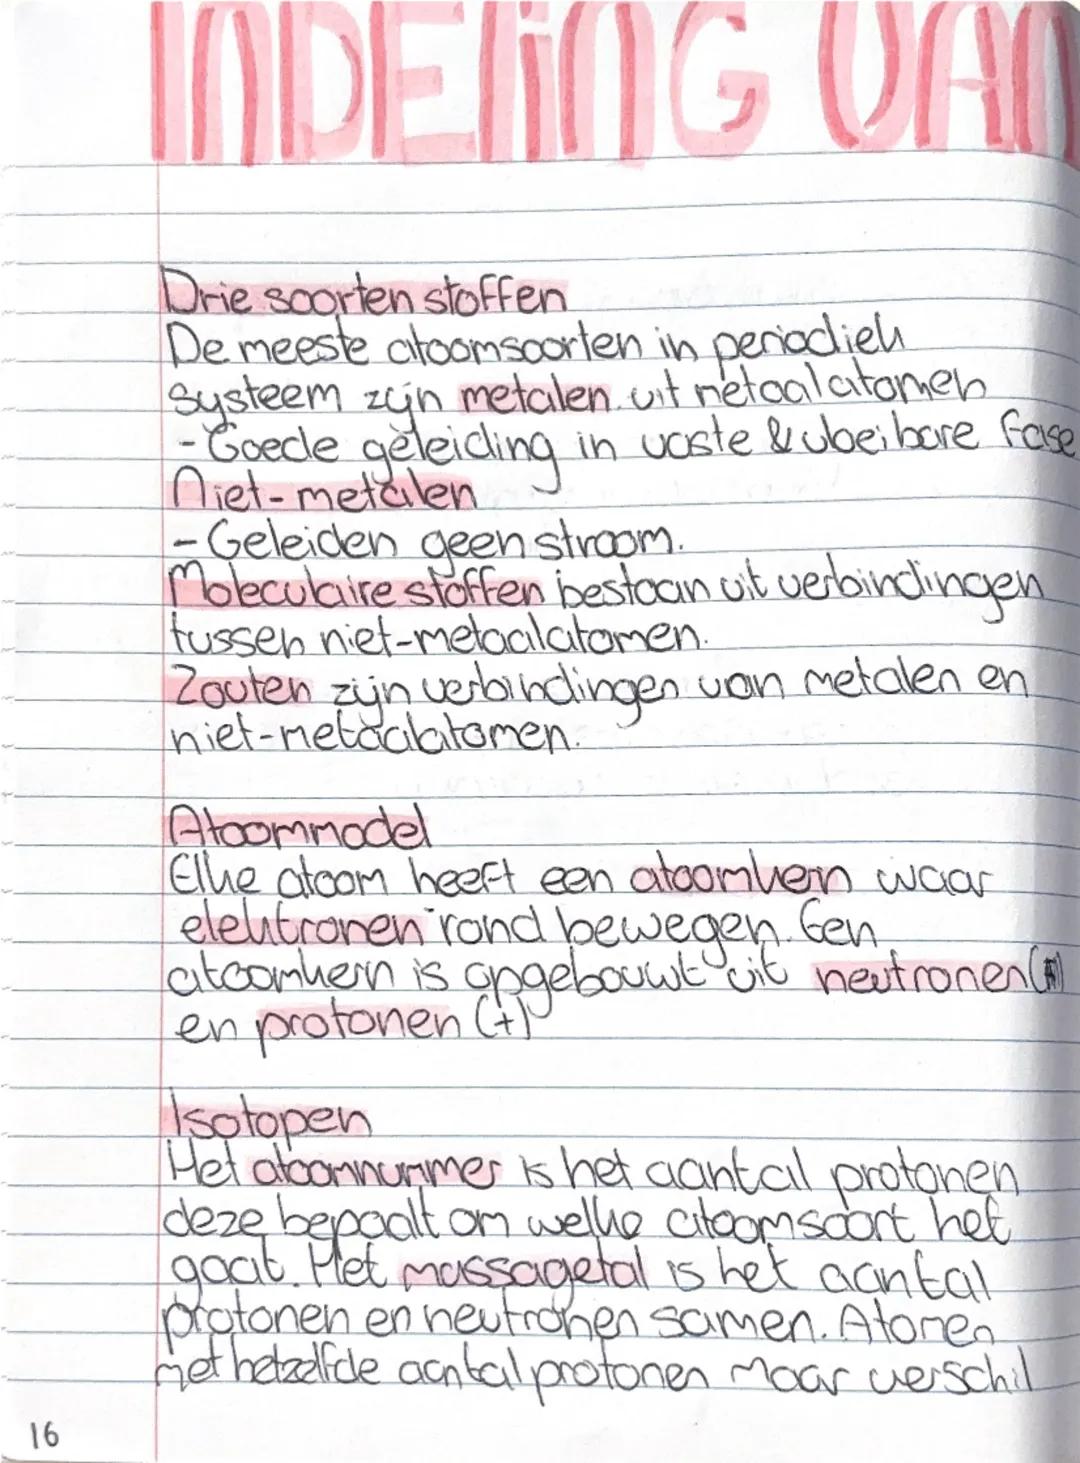 INDEliNG VAN
Drie soorten stoffen
De meeste atoomsoorten in periodiek
systeem zijn metalen. uit metaalatomen
- Goede geleiding in vaste & vloeibare fase
Niet-metalen
- Geleiden geen stroom.
Moleculaire stoffen bestaan uit verbindingen
tussen niet-metaalatomen.
Zouten zijn verbindingen van metalen en
niet-metaalatomen.
Atoommodel
Elke atoom heeft een atoomkern waar
elektronen rond bewegen. Een
atoomkern is opgebouwt uit neutronen
en protonen (+)
Isotopen
Het atoomnummer is het aantal protonen
deze bepaalt om welke atoomsoort het
gaat. Het massagetal is het aantal
protonen en neutronen samen. Atomen
met hetzelfde aantal protonen maar verschil
16